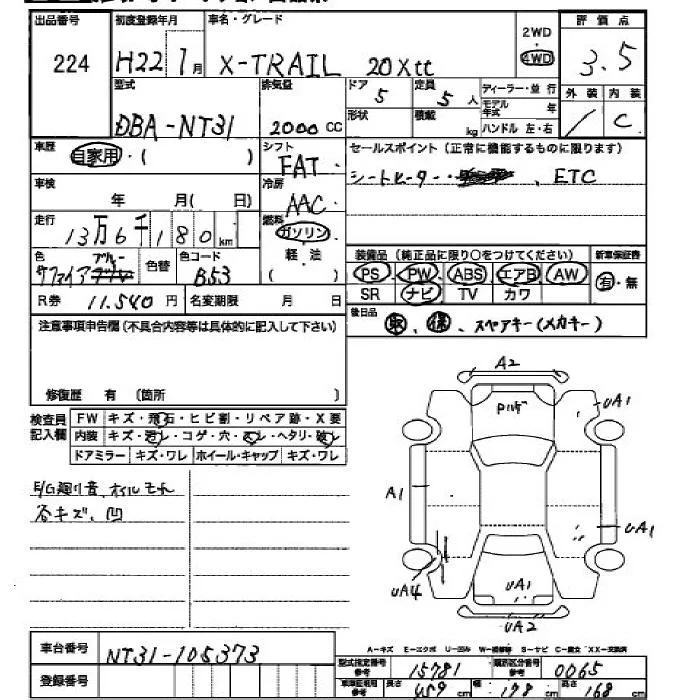 出品番号 初度登録年月 車名・グレード 評価点
224 H22 7月 X-TRAIL 20Xtt 2WD 4WD 3.5
型式 排気量 ドア 5 定員 5 人 ディーラー・並行 外装 内装
DBA-NT31 2000 CC 形状 積載 kg モデル年式 年 ハンドル 左・右 / C
車歴 自家用・( ) シフト FAT セールスポイント(正常に機能するものに限ります)
車検 年 月( 日) 冷房 AAC シートヒーター・ 、ETC
走行 13万6千180km 燃料 ガソリン 軽・油 ( )
色 サファイアブルー 色替 色コード B53
装備品(純正品に限り○をつけてください) 新車保証書
PS PW ABS エアB AW 有・無
SR ナビ TV カワ
R券 11.540 円 名変期限 月 日
後日品 取、保、スペアキー(メカキー)
注意事項申告欄(不具合内容等は具体的に記入して下さい)
修復歴 有 (箇所 )
検査員記入欄 FW キズ・飛石・ヒビ割・リペア跡・X要
内装 キズ・汚レ・コゲ・穴・スレ・ヘタリ・破レ
ドアミラー キズ・ワレ ホイール・キャップ キズ・ワレ
E/G廻り音、オイルモれ
各キズ、凹
A2
UA1
A1
UA1
UA4
UA1
UA2
A-キズ E-エクボ U-凹み W-補修跡 S-サビ C-腐食 XX-交換済
車台番号 NT31-105373
登録番号
型式指定番号 参考 15781 類別区分番号 参考 0065
車検証明用 参考 長さ 459 cm 幅 178 cm 高さ 168 cm